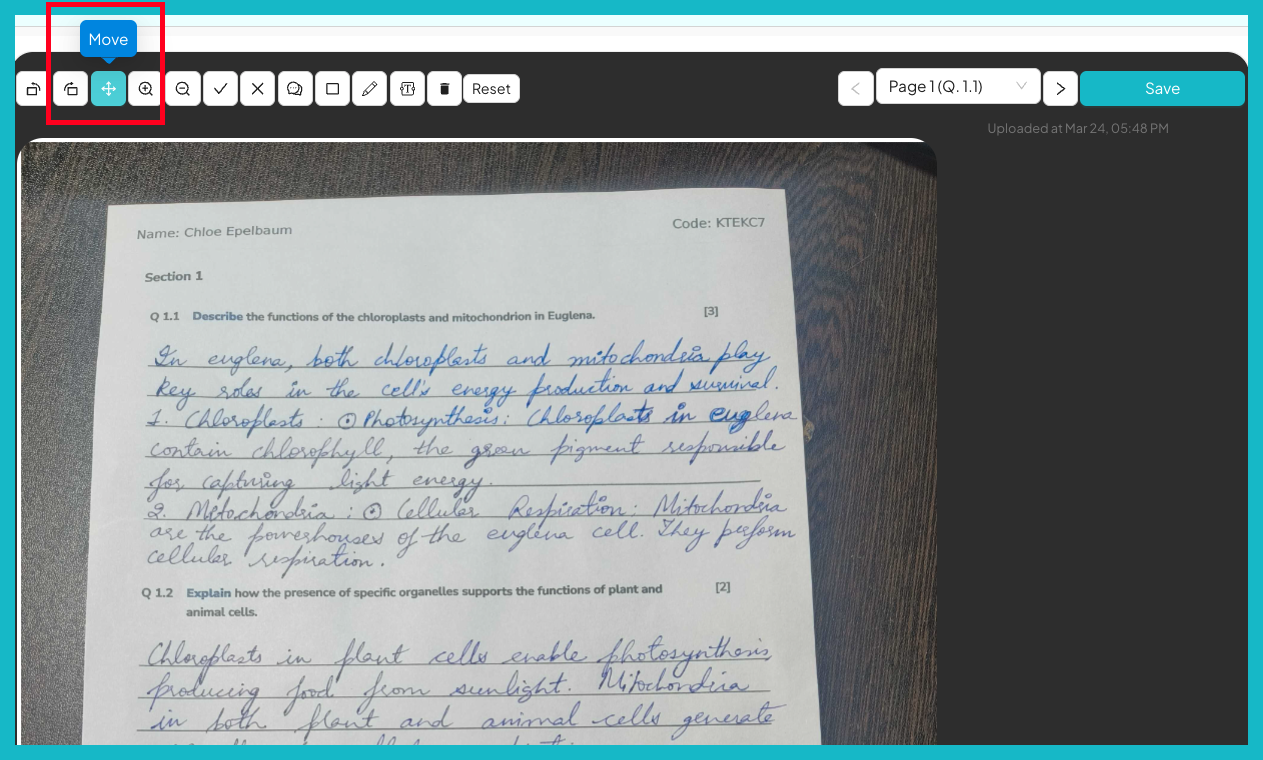 Move
Reset
Page 1 (Q. 1.1)
Save
Uploaded at Mar 24, 05:48 PM
Name: Chloe Epelbaum
Code: KTEKC7
Section 1
Q 1.1 Describe the functions of the chloroplasts and mitochondrion in Euglena. [3]
In euglena, both chloroplasts and mitochondria play
key roles in the cell's energy production and survival.
1. Chloroplasts : ⊙ Photosynthesis: Chloroplasts in euglena
contain chlorophyll, the green pigment responsible
for capturing light energy.
2. Mitochondria : ⊙ Cellular Respiration: Mitochondria
are the powerhouses of the euglena cell. They perform
cellular respiration.
Q 1.2 Explain how the presence of specific organelles supports the functions of plant and [2]
animal cells.
Chloroplasts in plant cells enable photosynthesis,
producing food from sunlight. Mitochondria
in both plant and animal cells generate